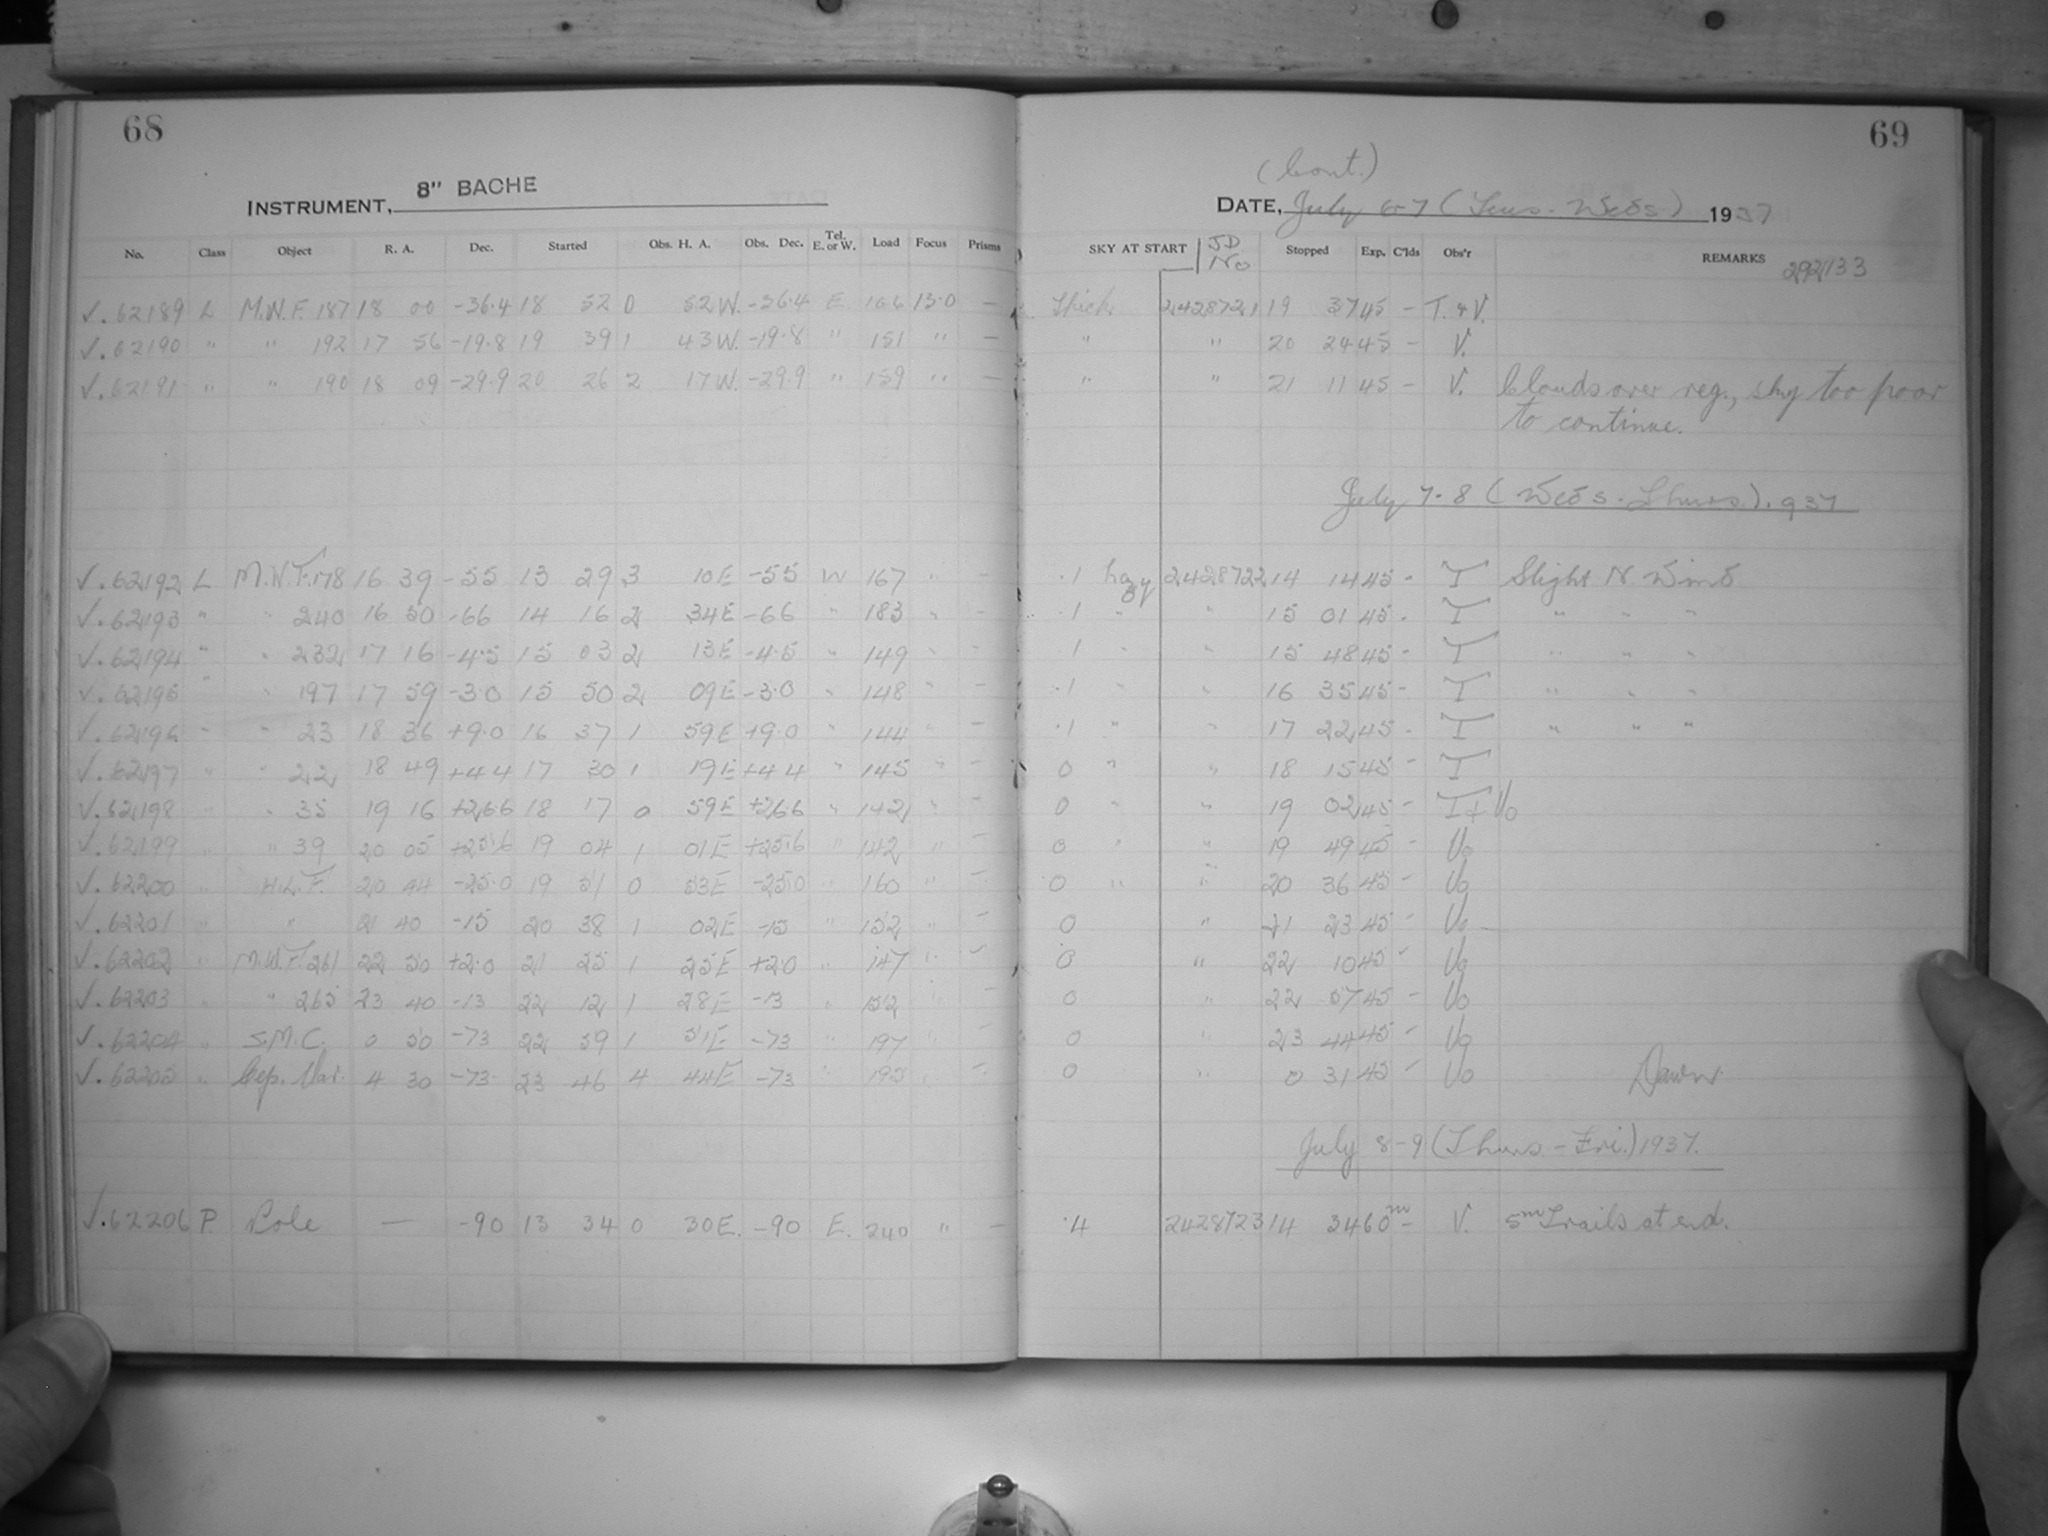 68
INSTRUMENT, 8" BACHE
No. Class Object R. A. Dec. Started Obs. H. A. Obs. Dec. Tel. E. or W. Load Focus Prisms
√. 62189 L M.W.F. 187 18 00 -36.4 18 52 0 52 W. -36.4 E. 166 13.0 —
√. 62190 " " 192 17 56 -19.8 19 39 1 43 W. -19.8 " 151 " —
√. 62191 " " 190 18 09 -29.9 20 26 2 17 W. -29.9 " 159 " —
√. 62192 L M.W.F. 178 16 39 -55 13 29 3 10 E -55 W 167 " -
√. 62193 " " 240 16 50 -66 14 16 2 34 E -66 " 183 " -
√. 62194 " " 232 17 16 -4.5 15 03 2 13 E -4.5 " 149 " -
√. 62195 " " 197 17 59 -3.0 15 50 2 09 E -3.0 " 148 " -
√. 62196 " " 23 18 36 +9.0 16 37 1 59 E +9.0 " 144 " -
√. 62197 " " 22 18 49 +4.4 17 30 1 19 E +4.4 " 145 " -
√. 62198 " " 35 19 16 +26.6 18 17 0 59 E +26.6 " 142 " -
√. 62199 " " 39 20 05 +25.6 19 04 1 01 E +25.6 " 142 " -
√. 62200 " H.L.F. 20 44 -25.0 19 51 0 53 E -25.0 " 160 " -
√. 62201 " " 21 40 -15 20 38 1 02 E -15 " 152 " -
√. 62202 " M.W.F. 261 22 50 +2.0 21 25 1 25 E +2.0 " 147 " -
√. 62203 " " 265 23 40 -13 22 12 1 28 E -13 " 152 " -
√. 62204 " S.M.C. 0 50 -73 22 59 1 51 E -73 " 197 " -
√. 62205 " Cep. Var. 4 30 -73 23 46 4 44 E -73 " 195 " -
√. 62206 P. Pole — -90 13 34 0 30 E. -90 E. 240 " —
69
(Cont.)
DATE, July 6-7 (Tues. - Weds) 1937
SKY AT START JD No Stopped Exp. C'lds Obs'r REMARKS 292133
Thick 2428721 19 37 45 - T. & V.
" " 20 24 45 - V.
" " 21 11 45 - V. Clouds over reg., sky too poor
to continue.
July 7-8 (Weds - Thurs.). 937
.1 hazy 2428722 14 14 45 - T Slight N. Wind
.1 " " 15 01 45 - T " " "
1 " " 15 48 45 - T " " "
.1 " " 16 35 45 - T " " "
.1 " " 17 22 45 - T " " "
0 " " 18 15 45 - T
0 " " 19 02 45 - T + Vo
0 " " 19 49 45 - Vo
0 " " 20 36 45 - Vo
0 " 21 23 45 - Vo
0 " 22 10 45 - Vo
0 " 22 57 45 - Vo
0 " 23 44 45 - Vo
0 " 0 31 45 - Vo Dawn.
July 8-9 (Thurs - Fri.) 1937.
.4 2428723 14 34 60m - V. 5m Trails at end.